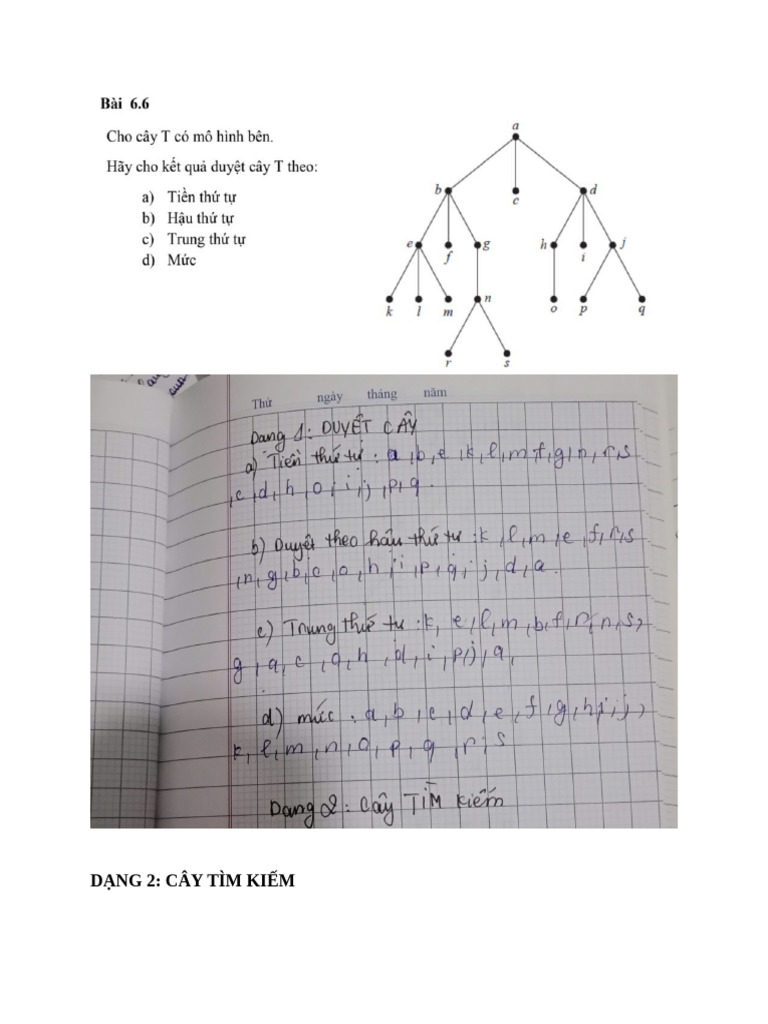 Bài 6.6
Cho cây T có mô hình bên.
Hãy cho kết quả duyệt cây T theo:
a) Tiền thứ tự
b) Hậu thứ tự
c) Trung thứ tự
d) Mức
a
b
c
d
e
f
g
h
i
j
k
l
m
n
o
p
q
r
s
Thứ ngày tháng năm
Dạng 1: DUYỆT CÂY
a) Tiền thứ tự : a, b, e, k, l, m, f, g, n, r, s
, c, d, h, o, i, j, p, q.
b) Duyệt theo hậu thứ tự : k, l, m, e, f, r, s
, n, g, b, c, o, h, i, p, q, j, d, a.
c) Trung thứ tự : k, e, l, m, b, f, r, n, s,
g, a, c, o, h, d, i, p, j, q,
d) mức : a, b, c, d, e, f, g, h, i, j,
k, l, m, n, o, p, q, r, s
Dạng 2: Cây TÌM kiếm
DẠNG 2: CÂY TÌM KIẾM